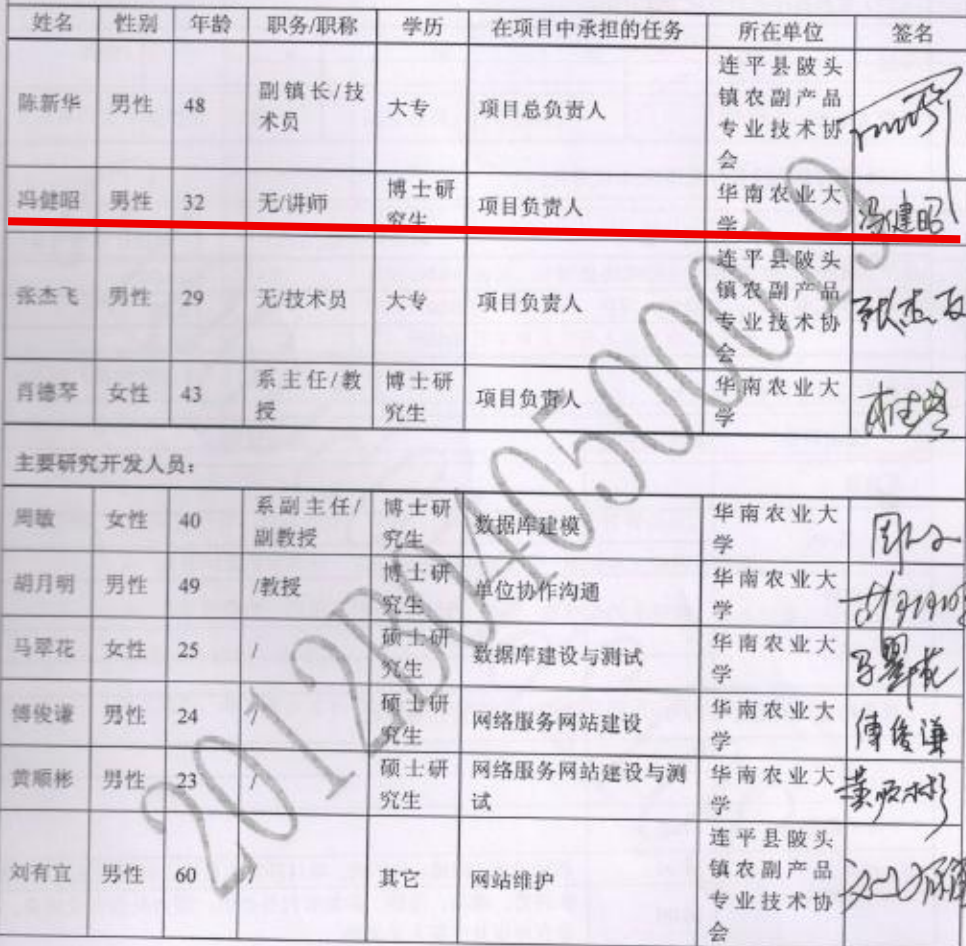 姓名 性别 年龄 职务/职称 学历 在项目中承担的任务 所在单位 签名
陈新华 男性 48 副镇长/技术员 大专 项目总负责人 连平县陂头镇农副产品专业技术协会
冯健昭 男性 32 无/讲师 博士研究生 项目负责人 华南农业大学 冯健昭
张杰飞 男性 29 无/技术员 大专 项目负责人 连平县陂头镇农副产品专业技术协会
肖德琴 女性 43 系主任/教授 博士研究生 项目负责人 华南农业大学
主要研究开发人员：
周敏 女性 40 系副主任/副教授 博士研究生 数据库建模 华南农业大学
胡月明 男性 49 /教授 博士研究生 单位协作沟通 华南农业大学 胡月明
马翠花 女性 25 / 硕士研究生 数据库建设与测试 华南农业大学 马翠花
傅俊谦 男性 24 / 硕士研究生 网络服务网站建设 华南农业大学 傅俊谦
黄顺彬 男性 23 / 硕士研究生 网络服务网站建设与测试 华南农业大学 黄顺彬
刘有宜 男性 60 / 其它 网站维护 连平县陂头镇农副产品专业技术协会
2012B040500019